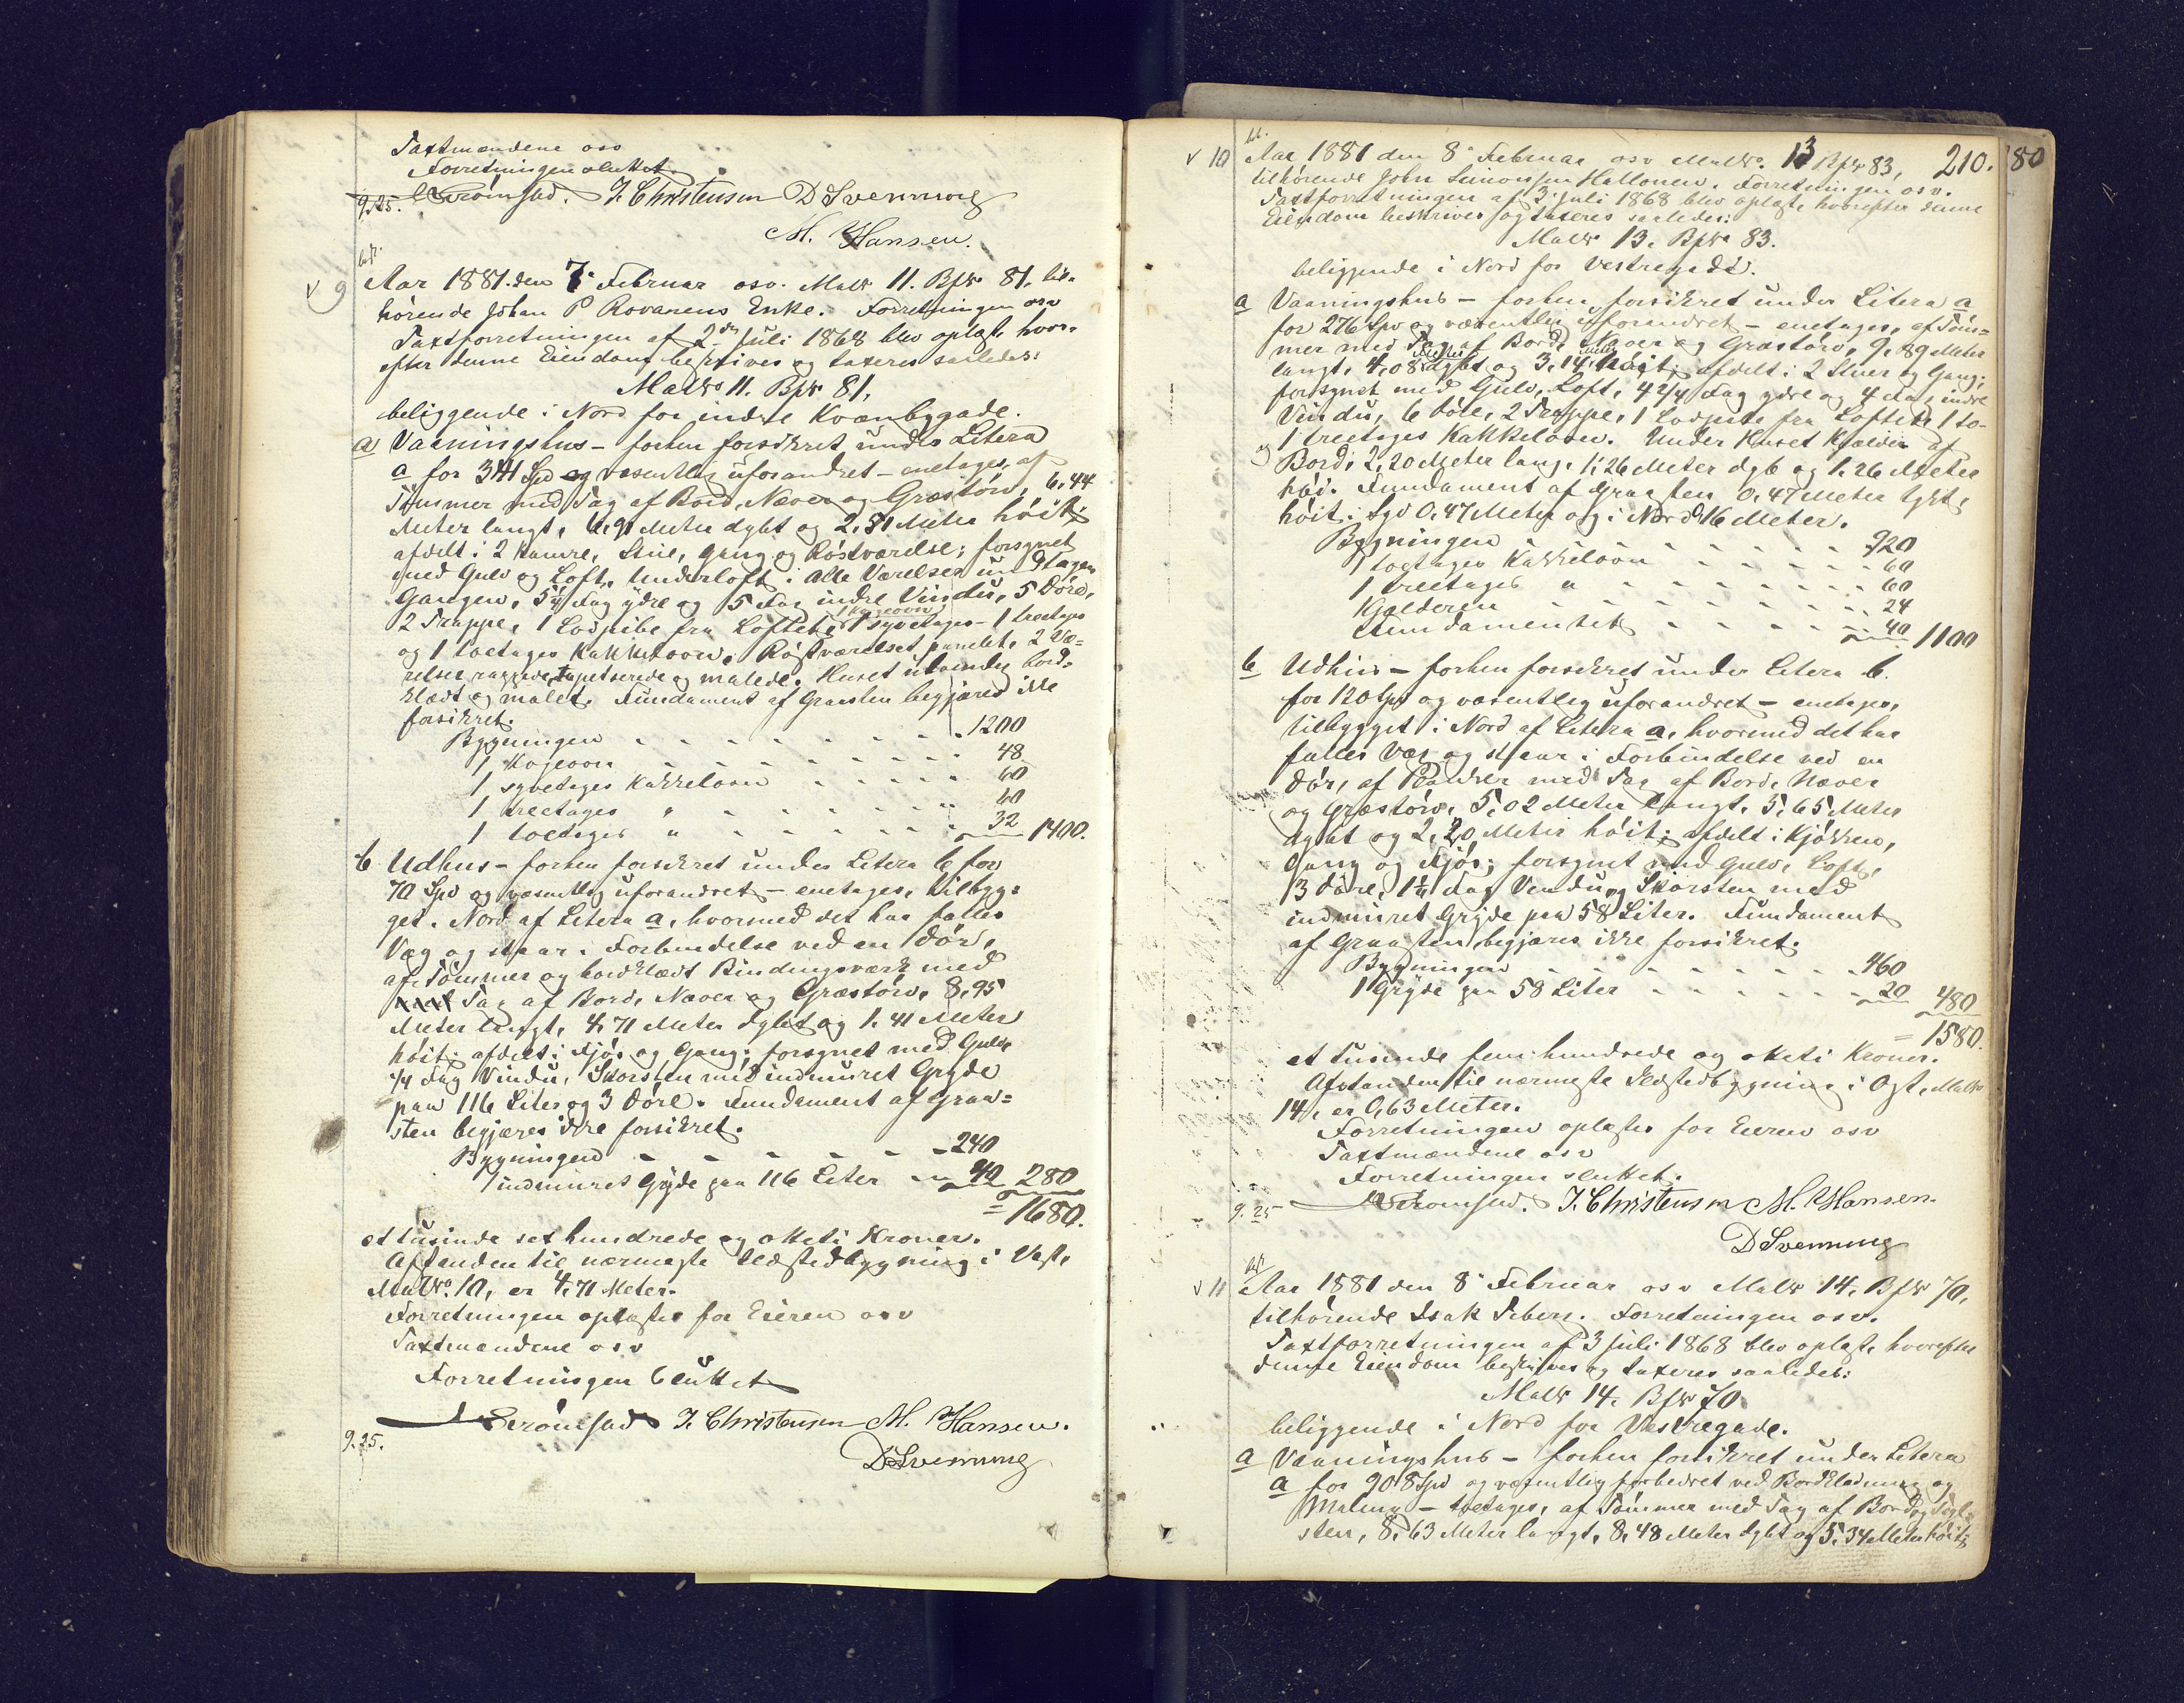 Taxtmændene osv
Forretningen sluttet
9.25. Strømsad. J. Christensen D Svenning
M. Hansen.
bf.
v 9 Aar 1881. den 7de Februar osv. Matr 11. Bfr 81, til-
hørende Johan P Rovanens Enke. Forretningen osv
Taxtforretningen af 2den Juli 1868 blev oplæst, hvor-
efter denne Eiendom beskrives og taxeres saaledes:
Matr 11. Bfr 81,
beliggende i Nord for indre Kvænbygade.
a Vaaningshus – forhen forsikret under Litera
a for 341 Spd og væsentlig uforandret – enetages, af
Tømmer med Tag af Bord, Næver og Græstørv, 6,44
Meter langt, 6,91 Meter dybt og 2,51 Meter høit;
afdelt i 2 Kamre, Stue, Gang og Røstværelse; forsynet
med Gulv og Loft, Underloft i alle Værelser und tagen
Gangen, 5 1/4 Fag ydre og 5 Fag indre Vindu, 5 Døre,
2 Trappe, 1 Lodpibe fra Loftet, 1 Kogeovn 1 syvetages – 1 treetages
og 1 toetages Kakkelovn. Røstværelset panelet, 2 Væ-
relser raggede, tapetserede og malede. Huset udvendig bord-
klædt og malet. Fundament af Graasten begjæres ikke
forsikret.
Bygningen - - - - - - - - 1200
1 Kogeovn - - - - - - - 48
1 syvetages Kakkelovn - - - - 60
1 treetages " - - - - - - 60
1 toetages " - - - - - - 32 1400.
b Udhus – forhen forsikret under Litera b for
70 Spd og væsentlig uforandret – enetages, tilbyg-
get i Nord af Litera a, hvormed det har fælles
Væg og staar i Forbindelse ved en Dør,
af Tømmer og bordklædt Bindingsværk med
Tag af Bord, Næver og Græstørv, 8,95
Meter langt, 4,71 Meter dybt og 1,41 Meter
høit; afdelt i Fjøs og Gang; forsynet med Gulv,
1/4 Fag Vindu, Skorsten med indmuret Gryde
paa 116 Liter og 3 Døre. Fundament af Graa-
sten begjæres ikke forsikret.
Bygningen - - - - - - 240
1 indmuret Gryde paa 116 Liter - - 40 280
= 1680.
et tusinde sex hundrede og otteti Kroner.
Afstanden til nærmeste Ildstedbygning i Vest,
Matr. 10, er 4,71 Meter.
Forretningen oplæstes for Eieren osv
Taxtmændene osv
Forretningen sluttet
9.25. Strømsad J. Christensen M. Hansen.
D Svenning
210. 80
bf.
v 10 Aar 1881 den 8de Februar osv Matr. 13 Bfr 83,
tilhørende John Simonsen Hallonen. Forretningen osv.
Taxtforretningen af 3 Juli 1868 blev oplæst, hvorefter denne
Eiendom beskrives og taxeres saaledes:
Matr 13. Bfr 83.
beliggende i Nord for Vestregade.
a Vaaningshus – forhen forsikret under Litera a
for 276 Spd og væsentlig uforandret – enetages, af Tøm-
mer med Tag af Bord, Næver og Græstørv, 9,89 Meter
langt, 4,08 Meter dybt og 3,14 Meter høit; afdelt i 2 Stuer og Gang;
forsynet med Gulv, Loft, 4 2/4 Fag ydre og 4 Fag indre
Vindu, 6 Døre, 2 Trappe, 1 Lodpibe fra Loftet, 1 to-
og 1 treetages Kakkelovn. Under Huset Kjælder af
Bord, 2,20 Meter lang, 1,26 Meter dyb og 1,26 Meter
høi. Fundament af Graasten 0,47 Meter tykt,
høit i Syd 0,47 Meter og i Nord 0,16 Meter.
Bygningen - - - - - - 920
1 toetages Kakkelovn - - - - - 60
1 treetages " - - - - - - 60
Kjælderen - - - - - - 24
Fundamentet - - - - - 40 1100
b Udhus – forhen forsikret under Litera b.
for 120 Spd og væsentlig uforandret – enetages,
tilbygget i Nord af Litera a, hvormed det har
fælles Væg og staar i Forbindelse ved en
Dør, af Planker med Tag af Bord, Næver
og Græstørv, 5,02 Meter langt, 5,65 Meter
dybt og 2,20 Meter høit; afdelt i Kjøkken,
Gang og Fjøs; forsynet med Gulv, Loft,
3 Døre, 1 1/4 Fag Vindu, og Skorsten med
indmuret Gryde paa 58 Liter. Fundament
af Graasten begjæres ikke forsikret.
Bygningen - - - - - - 460
1 Gryde paa 58 Liter - - - - - 20 480
= 1580.
et tusinde fem hundrede og otteti Kroner.
Afstanden til nærmeste Ildstedbygning i Ost, Matr
14, er 0,63 Meter.
Forretningen oplæstes for Eieren osv
Taxtmændene osv
Forretningen sluttet.
9.25 Strømsad. J. Christensen M. Hansen.
D Svenning
bf.
v 11 Aar 1881 den 8de Februar osv Matr 14, Bfr 70,
tilhørende Isak Febers. Forretningen osv.
Taxtforretningen af 3 Juli 1868 blev oplæst, hvorefter
denne Eiendom beskrives og taxeres saaledes:
Matr 14. Bfr 70
beliggende i Nord for Vestregade.
a Vaaningshus – forhen forsikret under Litera
a for 908 Spd og væsentlig forbedret ved Bordklædning og
Maling – toetages, af Tømmer med Tag af Bord og Tegl-
sten, 8,63 Meter langt, 8,48 Meter dybt og 5,34 Meter høit;